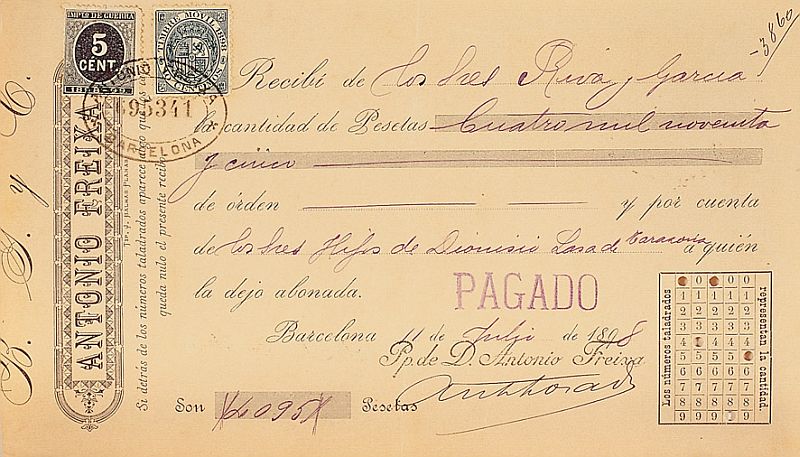 IMPTO DE GUERRA
5
CENT.
1898-99
TIMBRE MÓVIL 1898
10 CENTS
ANTONIO FREIXA
BARCELONA
-3860
B. S. y C.
ANTONIO FREIXA
Si detrás de los números taladrados aparece algo que los
queda nulo el presente recibo.
Recibí de los Sres Riva y Garcia
la cantidad de Pesetas Cuatro mil noventa
y cinco
de órden y por cuenta
de los Sres Hijos de Dionisio Lasa de Tarazona a quién
la dejo abonada.
PAGADO
Barcelona 11 de Julio de 1898
Pp. de D. Antonio Freixa
Son 4095 Pesetas
Los números taladrados
0 0
1 1 1 1 1
2 2 2 2 2
3 3 3 3 3
4 4 4 4
5 5 5 5
6 6 6 6 6
7 7 7 7 7
8 8 8 8 8
9 9 9 9
representan la cantidad.